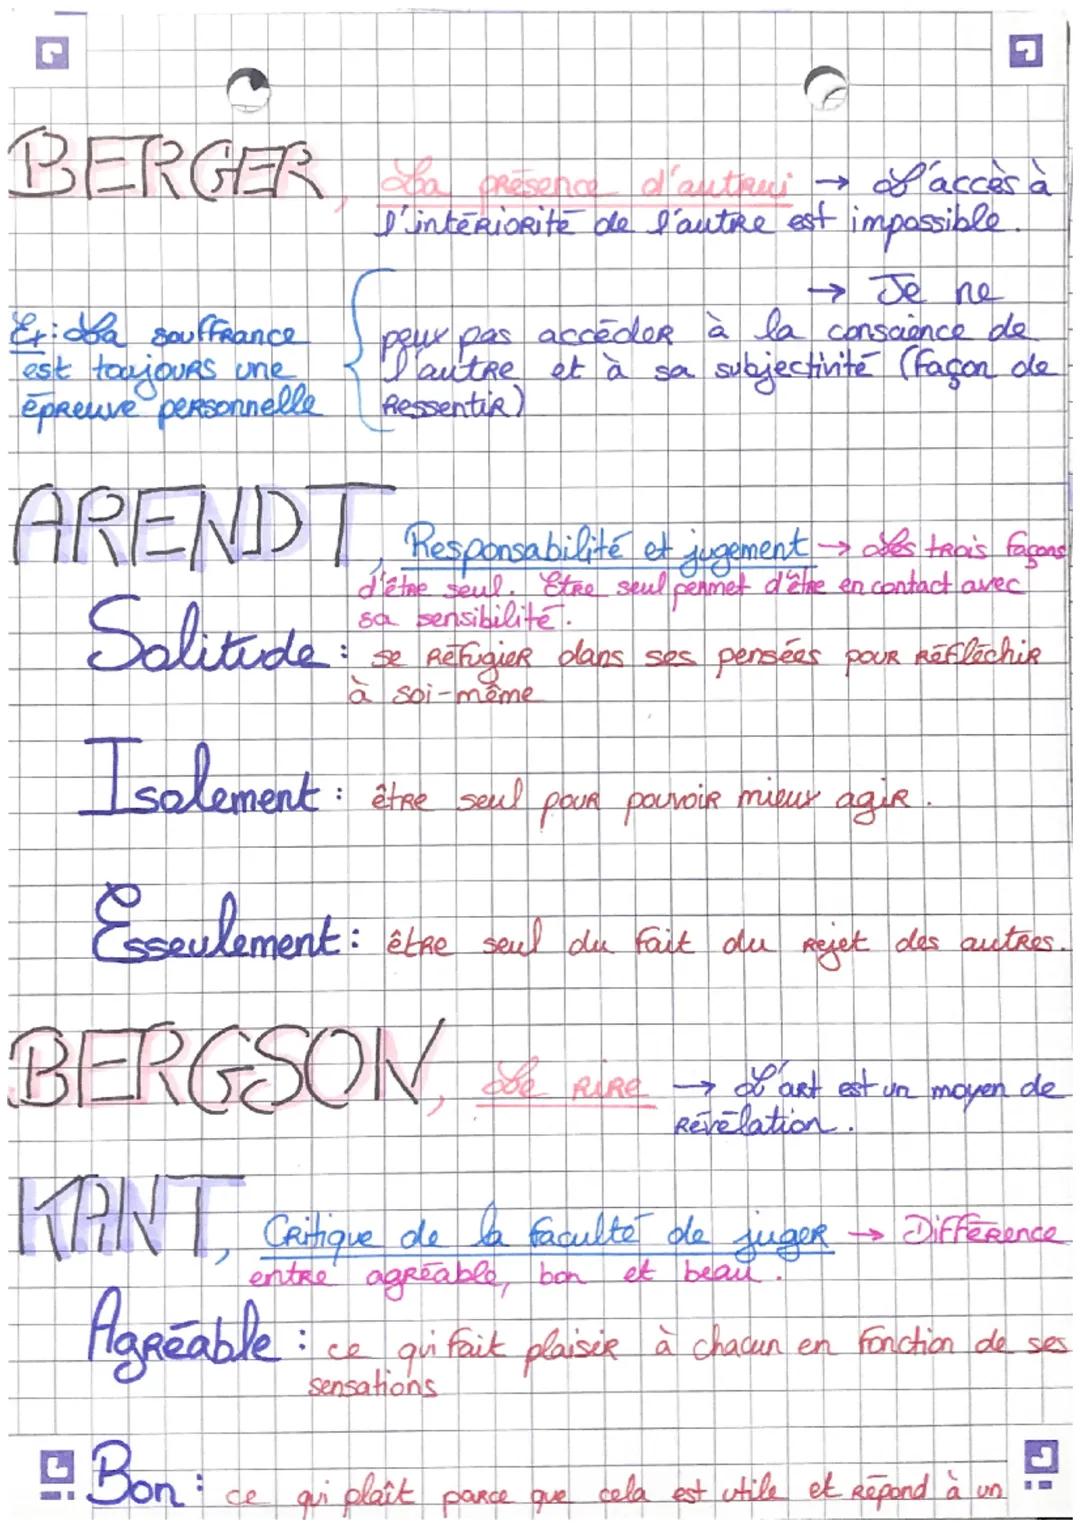 BERGER, La présence d'autrui → L'accès à
l'intériorité de l'autre est impossible.
→ Je ne
Ex: La souffrance
est toujours une
épreuve personnelle
peux pas accéder à la conscience de
l'autre et à sa subjectivité (façon de
ressentir)
ARENDT, Responsabilité et jugement → Les trois façons
d'être seul. Etre seul permet d'être en contact avec
sa sensibilité.
Solitude : se réfugier dans ses pensées pour réfléchir
à soi-même
Isolement : être seul pour pouvoir mieux agir.
Esseulement : être seul du fait du rejet des autres.
BERGSON, Le rire → L'art est un moyen de
révélation.
KANT, Critique de la faculté de juger → Différence
entre agréable, bon et beau.
Agréable : ce qui fait plaisir à chacun en fonction de ses
sensations
Bon : ce qui plaît parce que cela est utile et répond à un